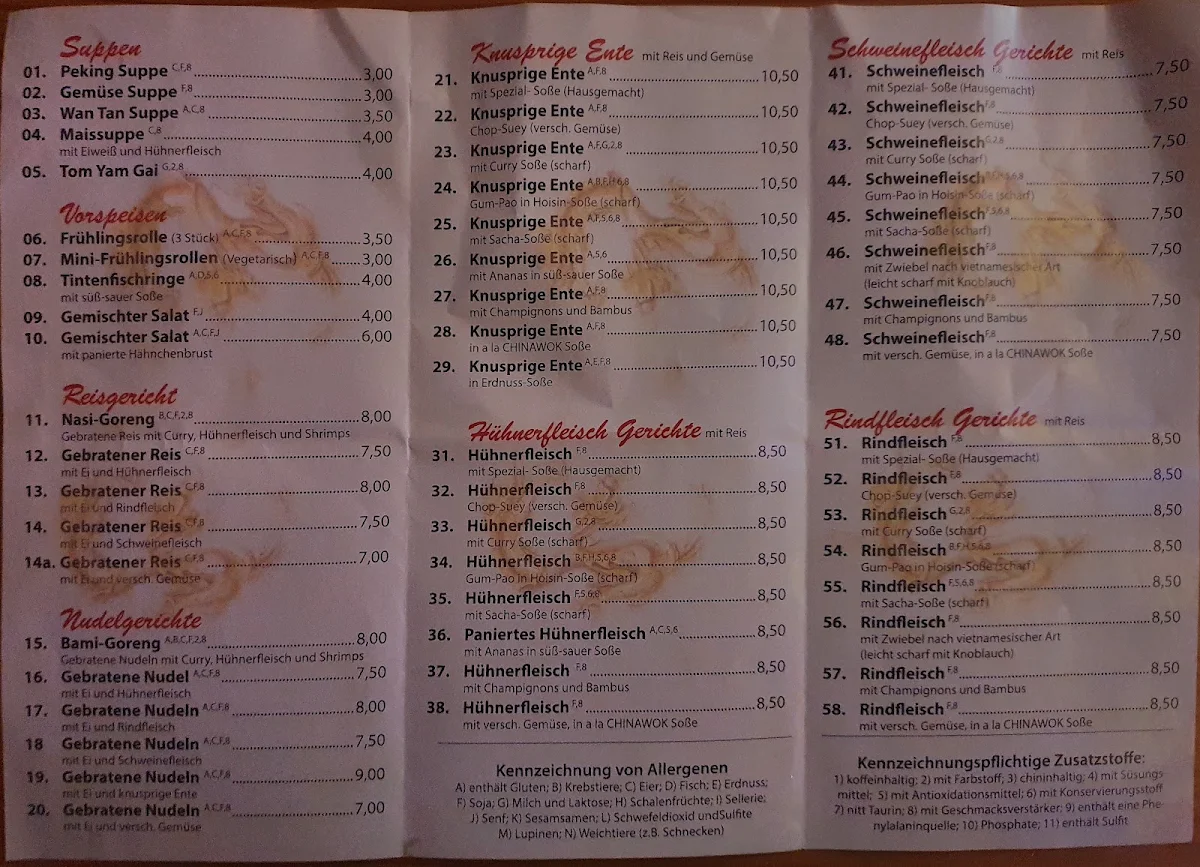 Suppen
01. Peking Suppe C,F,8 3,00
02. Gemüse Suppe F,8 3,00
03. Wan Tan Suppe A,C,8 3,50
04. Maissuppe C,8 4,00
mit Eiweiß und Hühnerfleisch
05. Tom Yam Gai G,2,8 4,00
Vorspeisen
06. Frühlingsrolle (3 Stück) A,C,F,8 3,50
07. Mini-Frühlingsrollen (Vegetarisch) A,C,F,8 3,00
08. Tintenfischringe A,D,5,6 4,00
mit süß-sauer Soße
09. Gemischter Salat F,J 4,00
10. Gemischter Salat A,C,F,J 6,00
mit panierte Hähnchenbrust
Reisgericht
11. Nasi-Goreng B,C,F,2,8 8,00
Gebratene Reis mit Curry, Hühnerfleisch und Shrimps
12. Gebratener Reis C,F,8 7,50
mit Ei und Hühnerfleisch
13. Gebratener Reis C,F,8 8,00
mit Ei und Rindfleisch
14. Gebratener Reis C,F,8 7,50
mit Ei und Schweinefleisch
14a. Gebratener Reis C,F,8 7,00
mit Ei und versch. Gemüse
Nudelgerichte
15. Bami-Goreng A,B,C,F,2,8 8,00
Gebratene Nudeln mit Curry, Hühnerfleisch und Shrimps
16. Gebratene Nudel A,C,F,8 7,50
mit Ei und Hühnerfleisch
17. Gebratene Nudeln A,C,F,8 8,00
mit Ei und Rindfleisch
18 Gebratene Nudeln A,C,F,8 7,50
mit Ei und Schweinefleisch
19. Gebratene Nudeln A,C,F,8 9,00
mit Ei und knusprige Ente
20. Gebratene Nudeln A,C,F,8 7,00
mit Ei und versch. Gemüse
Knusprige Ente mit Reis und Gemüse
21. Knusprige Ente A,F,8 10,50
mit Spezial- Soße (Hausgemacht)
22. Knusprige Ente A,F,8 10,50
Chop-Suey (versch. Gemüse)
23. Knusprige Ente A,F,G,2,8 10,50
mit Curry Soße (scharf)
24. Knusprige Ente A,B,F,H,6,8 10,50
Gum-Pao in Hoisin-Soße (scharf)
25. Knusprige Ente A,F,5,6,8 10,50
mit Sacha-Soße (scharf)
26. Knusprige Ente A,5,6 10,50
mit Ananas in süß-sauer Soße
27. Knusprige Ente A,F,8 10,50
mit Champignons und Bambus
28. Knusprige Ente A,F,8 10,50
in a la CHINAWOK Soße
29. Knusprige Ente A,E,F,8 10,50
in Erdnuss-Soße
Hühnerfleisch Gerichte mit Reis
31. Hühnerfleisch F,8 8,50
mit Spezial- Soße (Hausgemacht)
32. Hühnerfleisch F,8 8,50
Chop-Suey (versch. Gemüse)
33. Hühnerfleisch G,2,8 8,50
mit Curry Soße (scharf)
34. Hühnerfleisch B,F,H,5,6,8 8,50
Gum-Pao in Hoisin-Soße (scharf)
35. Hühnerfleisch F,5,6,8 8,50
mit Sacha-Soße (scharf)
36. Paniertes Hühnerfleisch A,C,5,6 8,50
mit Ananas in süß-sauer Soße
37. Hühnerfleisch F,8 8,50
mit Champignons und Bambus
38. Hühnerfleisch F,8 8,50
mit versch. Gemüse, in a la CHINAWOK Soße
Kennzeichnung von Allergenen
A) enthält Gluten; B) Krebstiere; C) Eier; D) Fisch; E) Erdnuss;
F) Soja; G) Milch und Laktose; H) Schalenfrüchte; I) Sellerie;
J) Senf; K) Sesamsamen; L) Schwefeldioxid undSulfite
M) Lupinen; N) Weichtiere (z.B. Schnecken)
Schweinefleisch Gerichte mit Reis
41. Schweinefleisch F,8 7,50
mit Spezial- Soße (Hausgemacht)
42. Schweinefleisch F,8 7,50
Chop-Suey (versch. Gemüse)
43. Schweinefleisch G,2,8 7,50
mit Curry Soße (scharf)
44. Schweinefleisch 7,50
Gum-Pao in Hoisin-Soße (scharf)
45. Schweinefleisch F,5,6,8 7,50
mit Sacha-Soße (scharf)
46. Schweinefleisch F,8 7,50
mit Zwiebel nach vietnamesischer Art
(leicht scharf mit Knoblauch)
47. Schweinefleisch F,8 7,50
mit Champignons und Bambus
48. Schweinefleisch F,8 7,50
mit versch. Gemüse, in a la CHINAWOK Soße
Rindfleisch Gerichte mit Reis
51. Rindfleisch F,8 8,50
mit Spezial- Soße (Hausgemacht)
52. Rindfleisch F,8 8,50
Chop-Suey (versch. Gemüse)
53. Rindfleisch G,2,8 8,50
mit Curry Soße (scharf)
54. Rindfleisch B,F,H,5,6,8 8,50
Gum-Pao in Hoisin-Soße (scharf)
55. Rindfleisch F,5,6,8 8,50
mit Sacha-Soße (scharf)
56. Rindfleisch F,8 8,50
mit Zwiebel nach vietnamesischer Art
(leicht scharf mit Knoblauch)
57. Rindfleisch F,8 8,50
mit Champignons und Bambus
58. Rindfleisch F,8 8,50
mit versch. Gemüse, in a la CHINAWOK Soße
Kennzeichnungspflichtige Zusatzstoffe:
1) koffeinhaltig; 2) mit Farbstoff; 3) chininhaltig; 4) mit Süsungs
mittel; 5) mit Antioxidationsmittel; 6) mit Konservierungsstoff
7) nitt Taurin; 8) mit Geschmacksverstärker; 9) enthält eine Phe
nylalaninquelle; 10) Phosphate; 11) enthält Sulfit